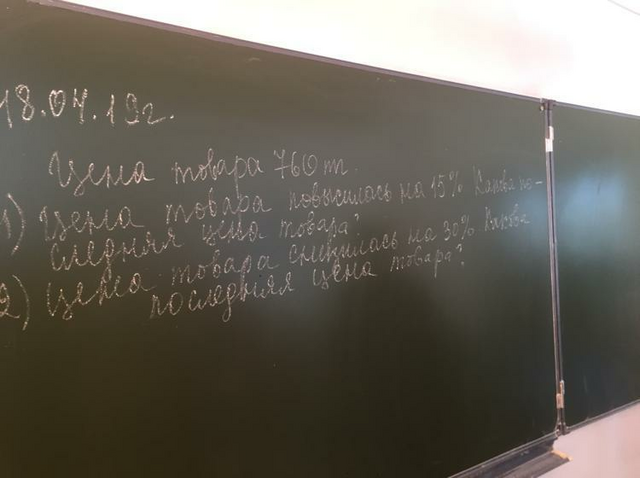 18.04.19г.
Цена товара 760 т.
1) Цена товара повысилась на 15% Какова по-
следняя цена товара?
2) Цена товара снизилась на 30% Какова
последняя цена товара?